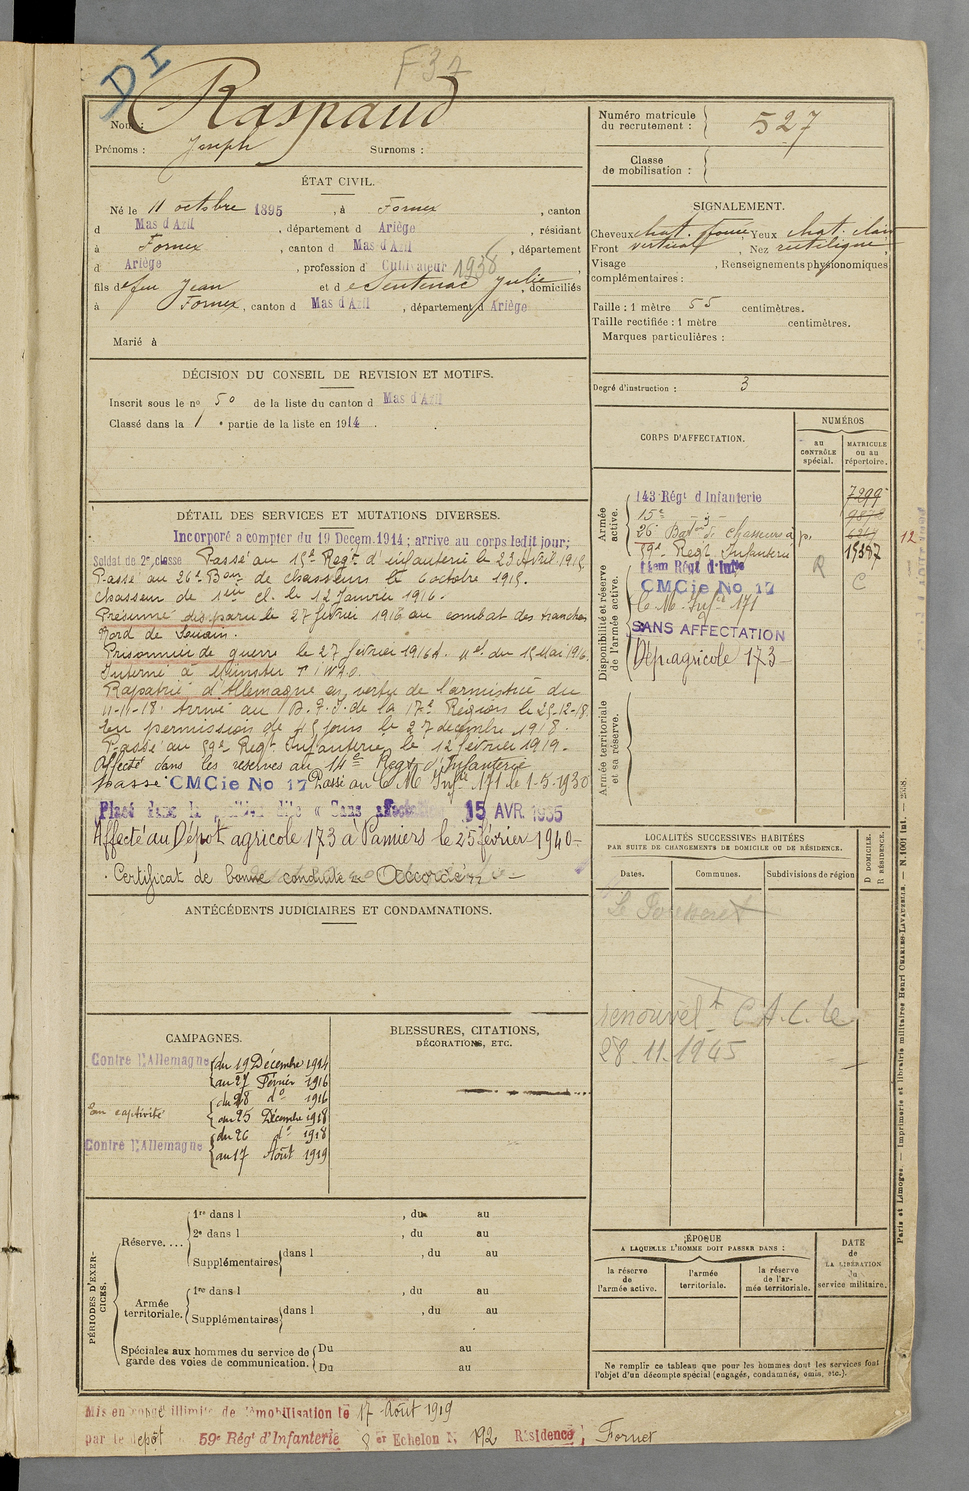 DI
F 37
Nom : Raspaud
Prénoms : Joseph Surnoms :
ÉTAT CIVIL.
Né le 11 octobre 1895, à Fornex, canton
d Mas d'Azil, département d Ariège, résidant
à Fornex, canton d Mas d'Azil, département
d Ariège, profession d Cultivateur 1938,
fils de feu Jean et de Sentenac Julie, domiciliés
à Fornex, canton d Mas d'Azil, département d Ariège
Marié à
DÉCISION DU CONSEIL DE REVISION ET MOTIFS.
Inscrit sous le nº 50 de la liste du canton d Mas d'Azil
Classé dans la 1e partie de la liste en 1914.
DÉTAIL DES SERVICES ET MUTATIONS DIVERSES.
Incorporé a compter du 19 Décem.1914; arrive au corps ledit jour;
Soldat de 2e classe Passé au 15e Regt d'infanterie le 23 Avril 1915.
Passé au 26e Bon de chasseurs le 6 octobre 1915.
Chasseur de 1ère cl. le 12 Janvier 1916.
Présumé disparu le 27 février 1916 au combat des tranchées
Nord de Souain.
Prisonnier de guerre le 27 février 1916
Interné à Munster
Rapatrié d'Allemagne en vertu de l'armistice du
11-11-18. Arrivé au de la 17e Région le 25-12-18.
En permission de jours le 27 décembre 1918.
Passé au 59e Regt Infanterie le 12 février 1919.
Affecté dans les réserves au 14e Regt d'Infanterie
passé CMCie No 17 Passé au C.M Infrie 171 le 1-5-1930
Placé dans la dite « Sans affectation 15 AVR. 1935
Affecté au Dépôt agricole 173 à Pamiers le 25 février 1940-
Certificat de bonne conduite Accordé
ANTÉCÉDENTS JUDICIAIRES ET CONDAMNATIONS.
CAMPAGNES.
Contre l'Allemagne du 19 Décembre 1914
au 27 Février 1916
En captivité du 28 do 1916
au 25 Décembre 1918
Contre l'Allemagne du 26 do 1918
au 17 Août 1919
BLESSURES, CITATIONS,
DÉCORATIONS, ETC.
PÉRIODES D'EXERCICES.
Réserve....
1re dans l , du au
2e dans l , du au
Supplémentaires dans l , du au
Armée territoriale.
1re dans l , du au
Supplémentaires dans l , du au
Spéciales aux hommes du service de garde des voies de communication.
Du au
Du au
Mis en congé illimité de démobilisation le 17 Août 1919
par le dépôt 59e Régt d'Infanterie 8 er Echelon N. 192 Résidence; Fornex
Numéro matricule du recrutement : 527
Classe de mobilisation :
SIGNALEMENT.
Cheveux chat. foncé, Yeux chat. clair
Front vertical, Nez rectiligne,
Visage , Renseignements physionomiques
complémentaires :
Taille : 1 mètre 55 centimètres.
Taille rectifiée : 1 mètre centimètres.
Marques particulières :
Degré d'instruction : 3
CORPS D'AFFECTATION.
NUMÉROS
au CONTRÔLE spécial.
MATRICULE ou au répertoire.
Armée active.
143 Régt d'Infanterie 7299
15e
26e Baton de chasseurs à p.
59e Regt Infanterie 15387
12
Disponibilité et réserve de l'armée active.
14em Régt d'Infie R
CMCie No 17 C
C.M. Infie 171
SANS AFFECTATION
Dép. agricole 173-
Armée territoriale et sa réserve.
LOCALITÉS SUCCESSIVES HABITÉES
PAR SUITE DE CHANGEMENTS DE DOMICILE OU DE RÉSIDENCE.
Dates. Communes. Subdivisions de région
D DOMICILE. R RÉSIDENCE.
renouvelt C.A.C. le
28.11.1945
ÉPOQUE
A LAQUELLE L'HOMME DOIT PASSER DANS :
la réserve de l'armée active.
l'armée territoriale.
la réserve de l'armée territoriale.
DATE de LA LIBÉRATION du service militaire.
Ne remplir ce tableau que pour les hommes dont les services font
l'objet d'un décompte spécial (engagés, condamnés, omis, etc.).
Paris et Limoges. — Imprimerie et librairie militaires Henri CHARLES-LAVAUZELLE. — N. 1001 Int. — 288.